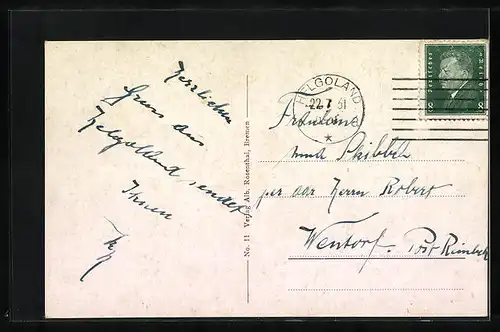 Herzlichen
Gruss aus
Helgoland sendet
Ihnen
No. 11 Verlag Alb. Rosenthal, Bremen
HELGOLAND
22.7.31
Deutsches Reich
8 8
Fräulein
per adr Herrn Robert
Wentorf. Post Reinbek